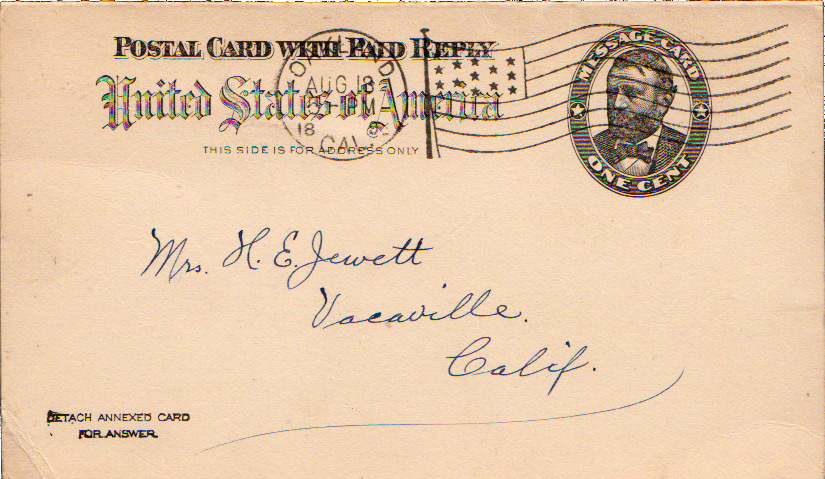 POSTAL CARD WITH PAID REPLY
United States of America
THIS SIDE IS FOR ADDRESS ONLY
OAKLAND
AUG 18
PM
18
CAL.
MESSAGE CARD
ONE CENT
Mrs. H. E. Jewett
Vacaville.
Calif.
DETACH ANNEXED CARD
FOR ANSWER.